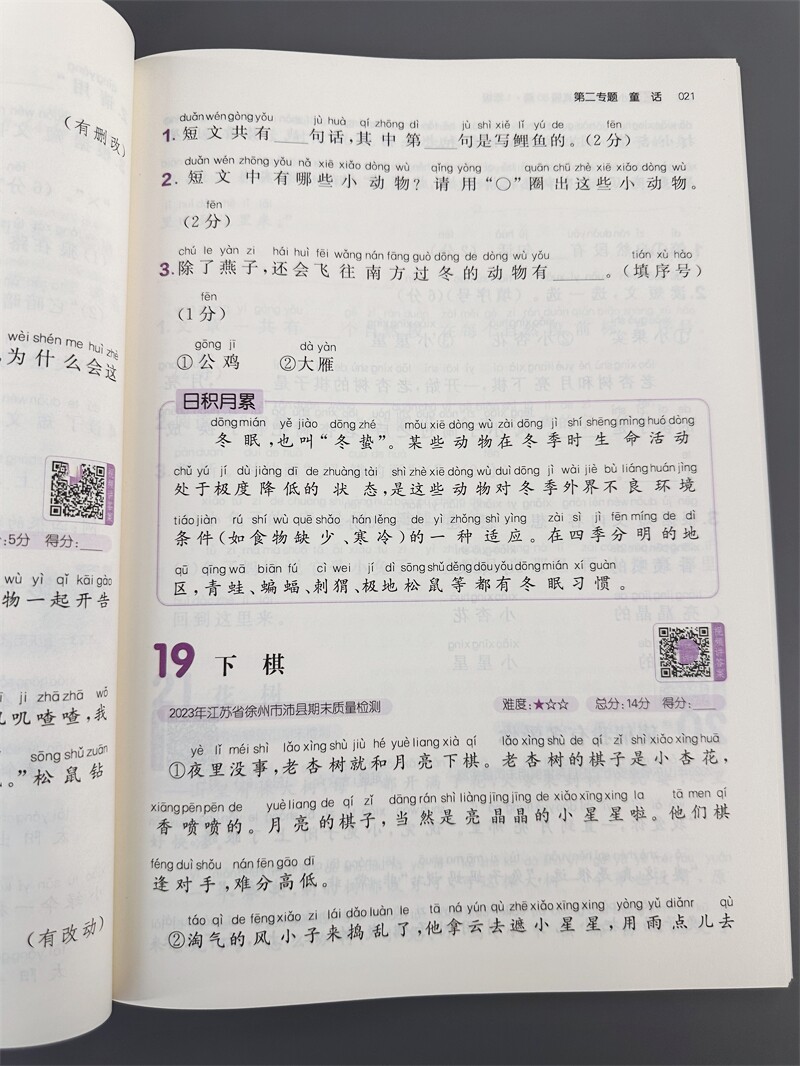 (有删改)
wèi shén me huì zhè
为什么会这
:5分 得分:___
wù yì qǐ kāi gào
物一起开告
jī ji zhā zhā wǒ
叽叽喳喳,我
sōng shǔ zuān
。”松鼠钻
(有改动)
第二专题 童 话 021
duǎn wén gòng yǒu jù huà qí zhōng dì jù shì xiě lǐ yú de fēn
1.短文共有___句话,其中第___句是写鲤鱼的。(2分)
duǎn wén zhōng yǒu nǎ xiē xiǎo dòng wù qǐng yòng quān chū zhè xiē xiǎo dòng wù
2.短文中有哪些小动物?请用“○”圈出这些小动物。
fēn
(2分)
chú le yàn zi hái huì fēi wǎng nán fāng guò dōng de dòng wù yǒu tián xù hào
3.除了燕子,还会飞往南方过冬的动物有____。(填序号)
fēn
(1分)
gōng jī dà yàn
①公鸡 ②大雁
日积月累
dōng mián yě jiào dōng zhé mǒu xiē dòng wù zài dōng jì shí shēng mìng huó dòng
冬眠,也叫“冬蛰”。某些动物在冬季时生命活动
chǔ yú jí dù jiàng dī de zhuàng tài shì zhè xiē dòng wù duì dōng jì wài jiè bù liáng huán jìng
处于极度降低的状态,是这些动物对冬季外界不良环境
tiáo jiàn rú shí wù quē shǎo hán lěng de yì zhǒng shì yìng zài sì jì fēn míng de dì
条件(如食物缺少、寒冷)的一种适应。在四季分明的地
qū qīng wā biān fú cì wei jí dì sōng shǔ děng dōu yǒu dōng mián xí guàn
区,青蛙、蝙蝠、刺猬、极地松鼠等都有冬眠习惯。
19 下棋
视频讲答案
2023年江苏省徐州市沛县期末质量检测 难度:★☆☆ 总分:14分 得分:___
yè lǐ méi shì lǎo xìng shù jiù hé yuè liang xià qí lǎo xìng shù de qí zǐ shì xiǎo xìng huā
①夜里没事,老杏树就和月亮下棋。老杏树的棋子是小杏花,
xiāng pēn pēn de yuè liang de qí zǐ dāng rán shì liàng jīng jīng de xiǎo xīng xing la tā men qí
香喷喷的。月亮的棋子,当然是亮晶晶的小星星啦。他们棋
féng duì shǒu nán fēn gāo dī
逢对手,难分高低。
táo qì de fēng xiǎo zi lái dǎo luàn le tā ná yún qù zhē xiǎo xīng xing yòng yǔ diǎnr qù
②淘气的风小子来捣乱了,他拿云去遮小星星,用雨点儿去